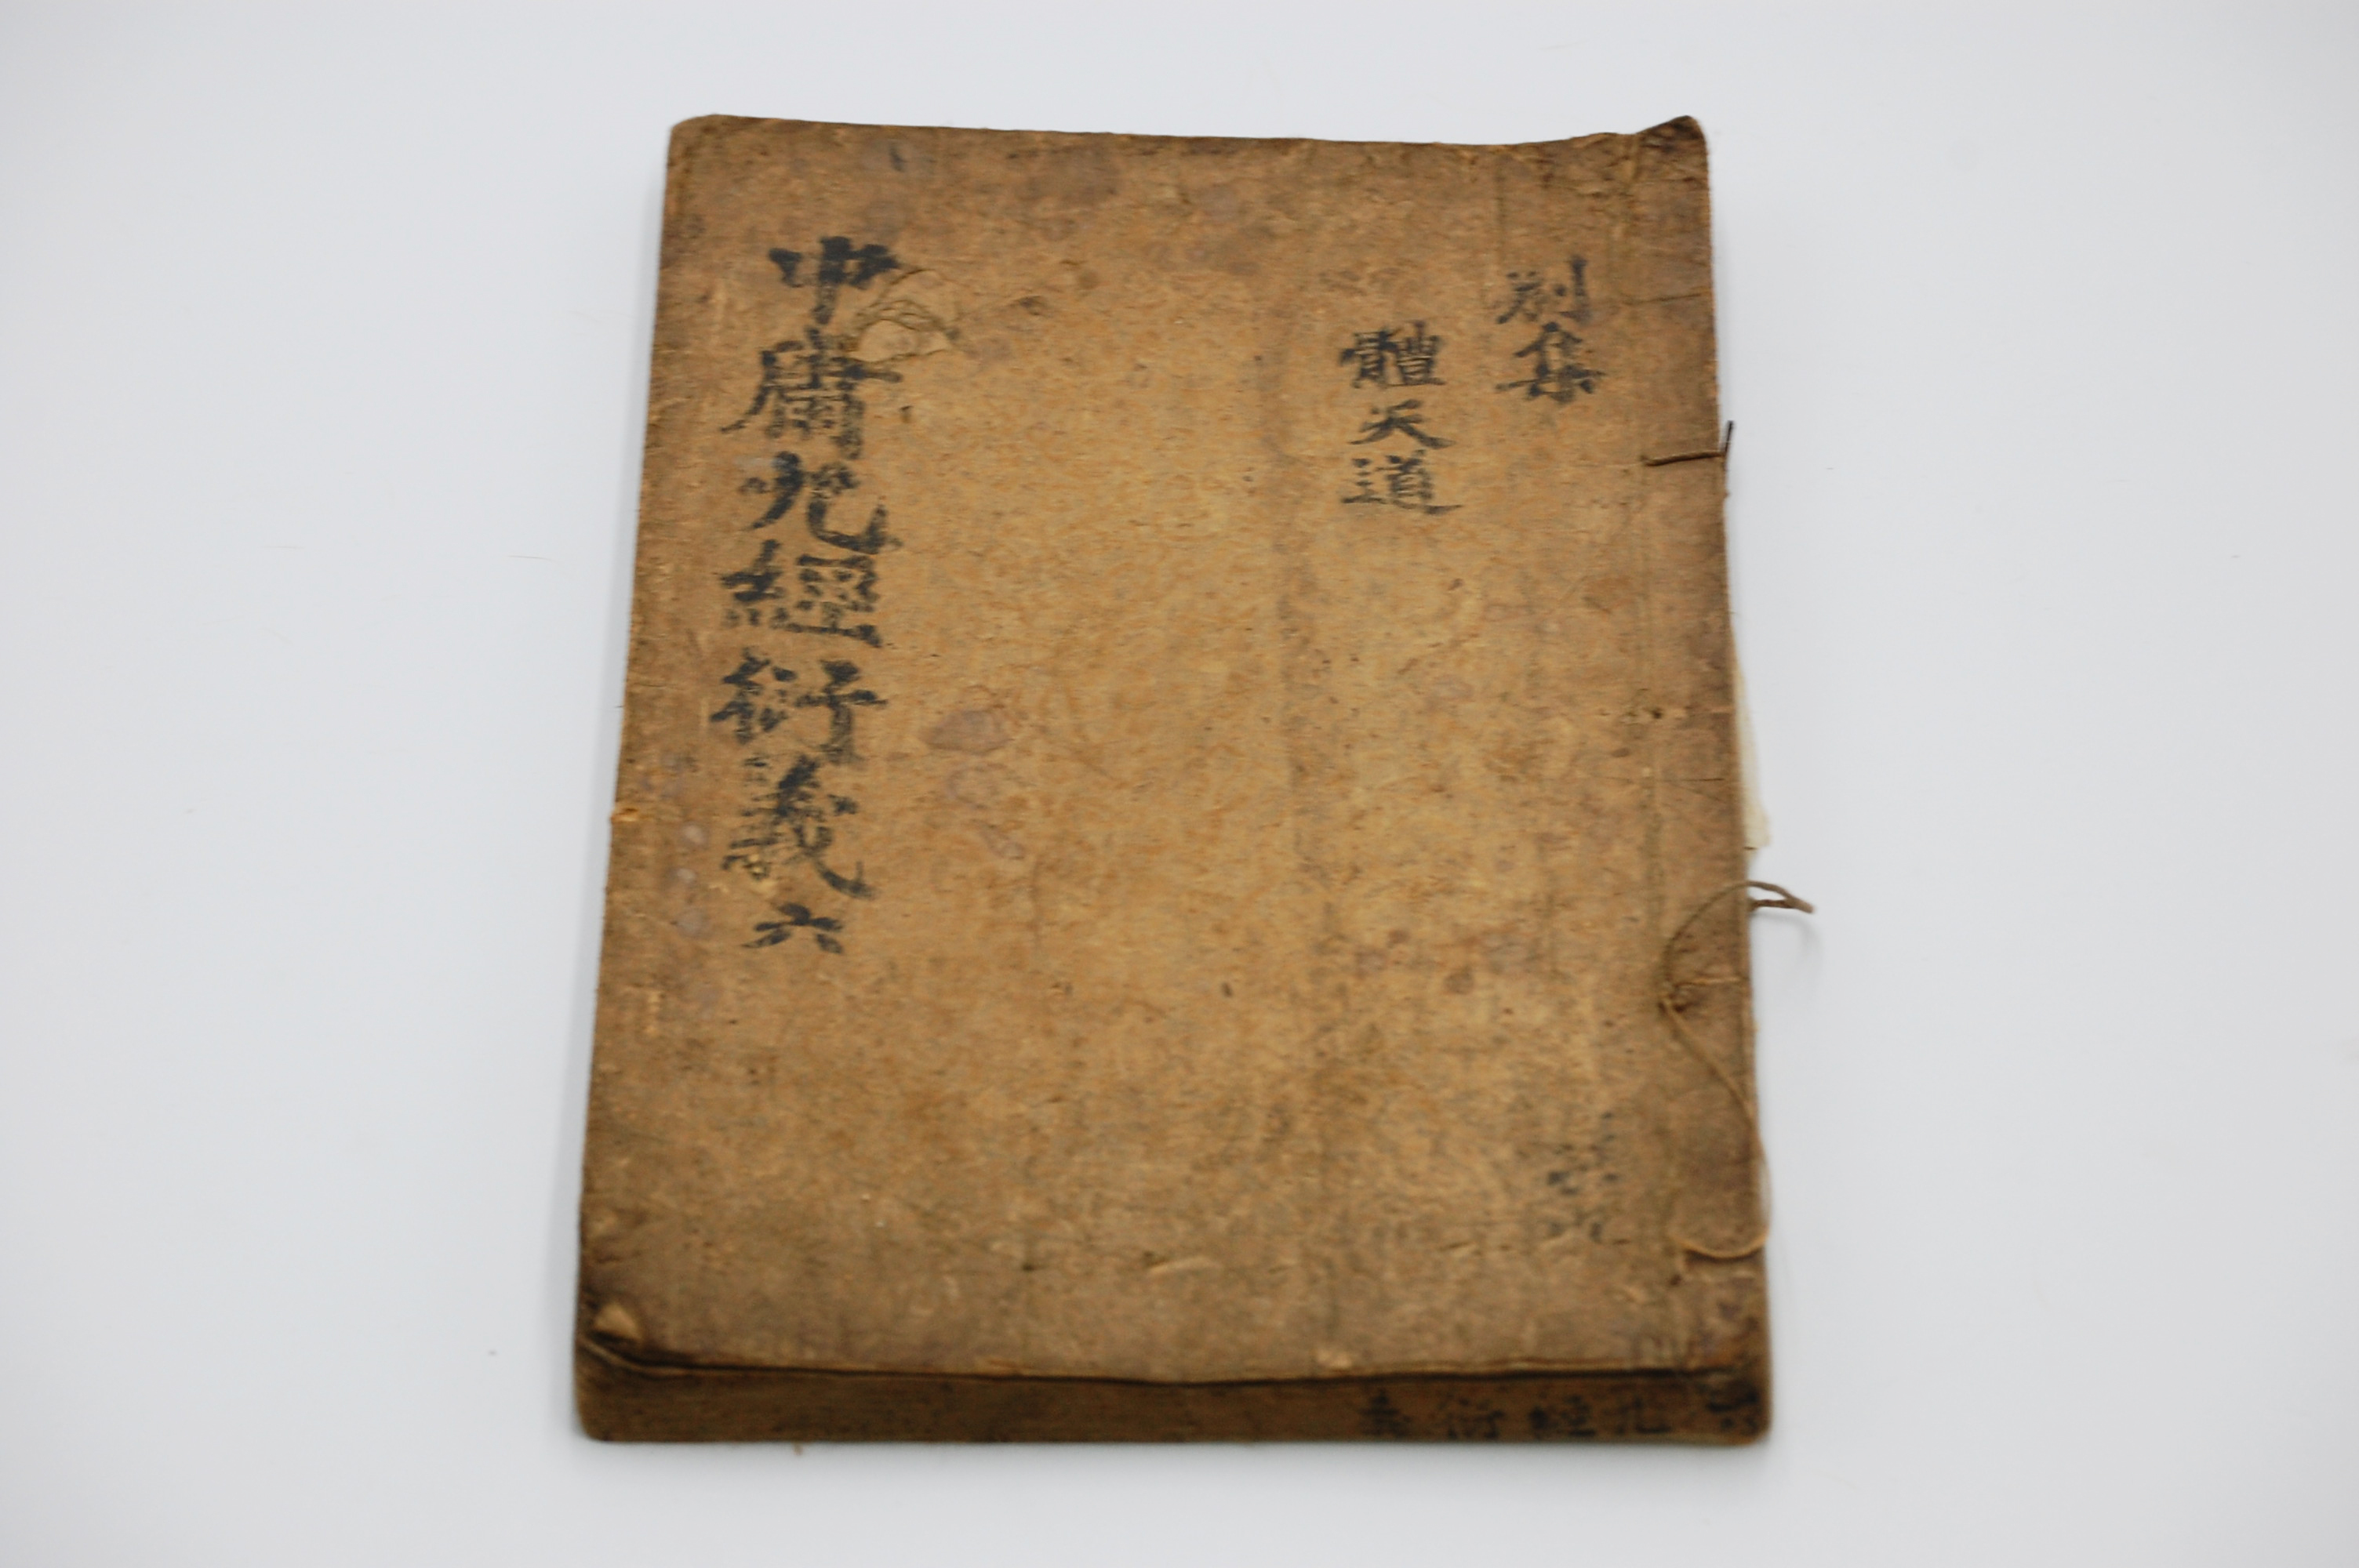 別集
體天道
中庸九經衍義 六
九經衍義